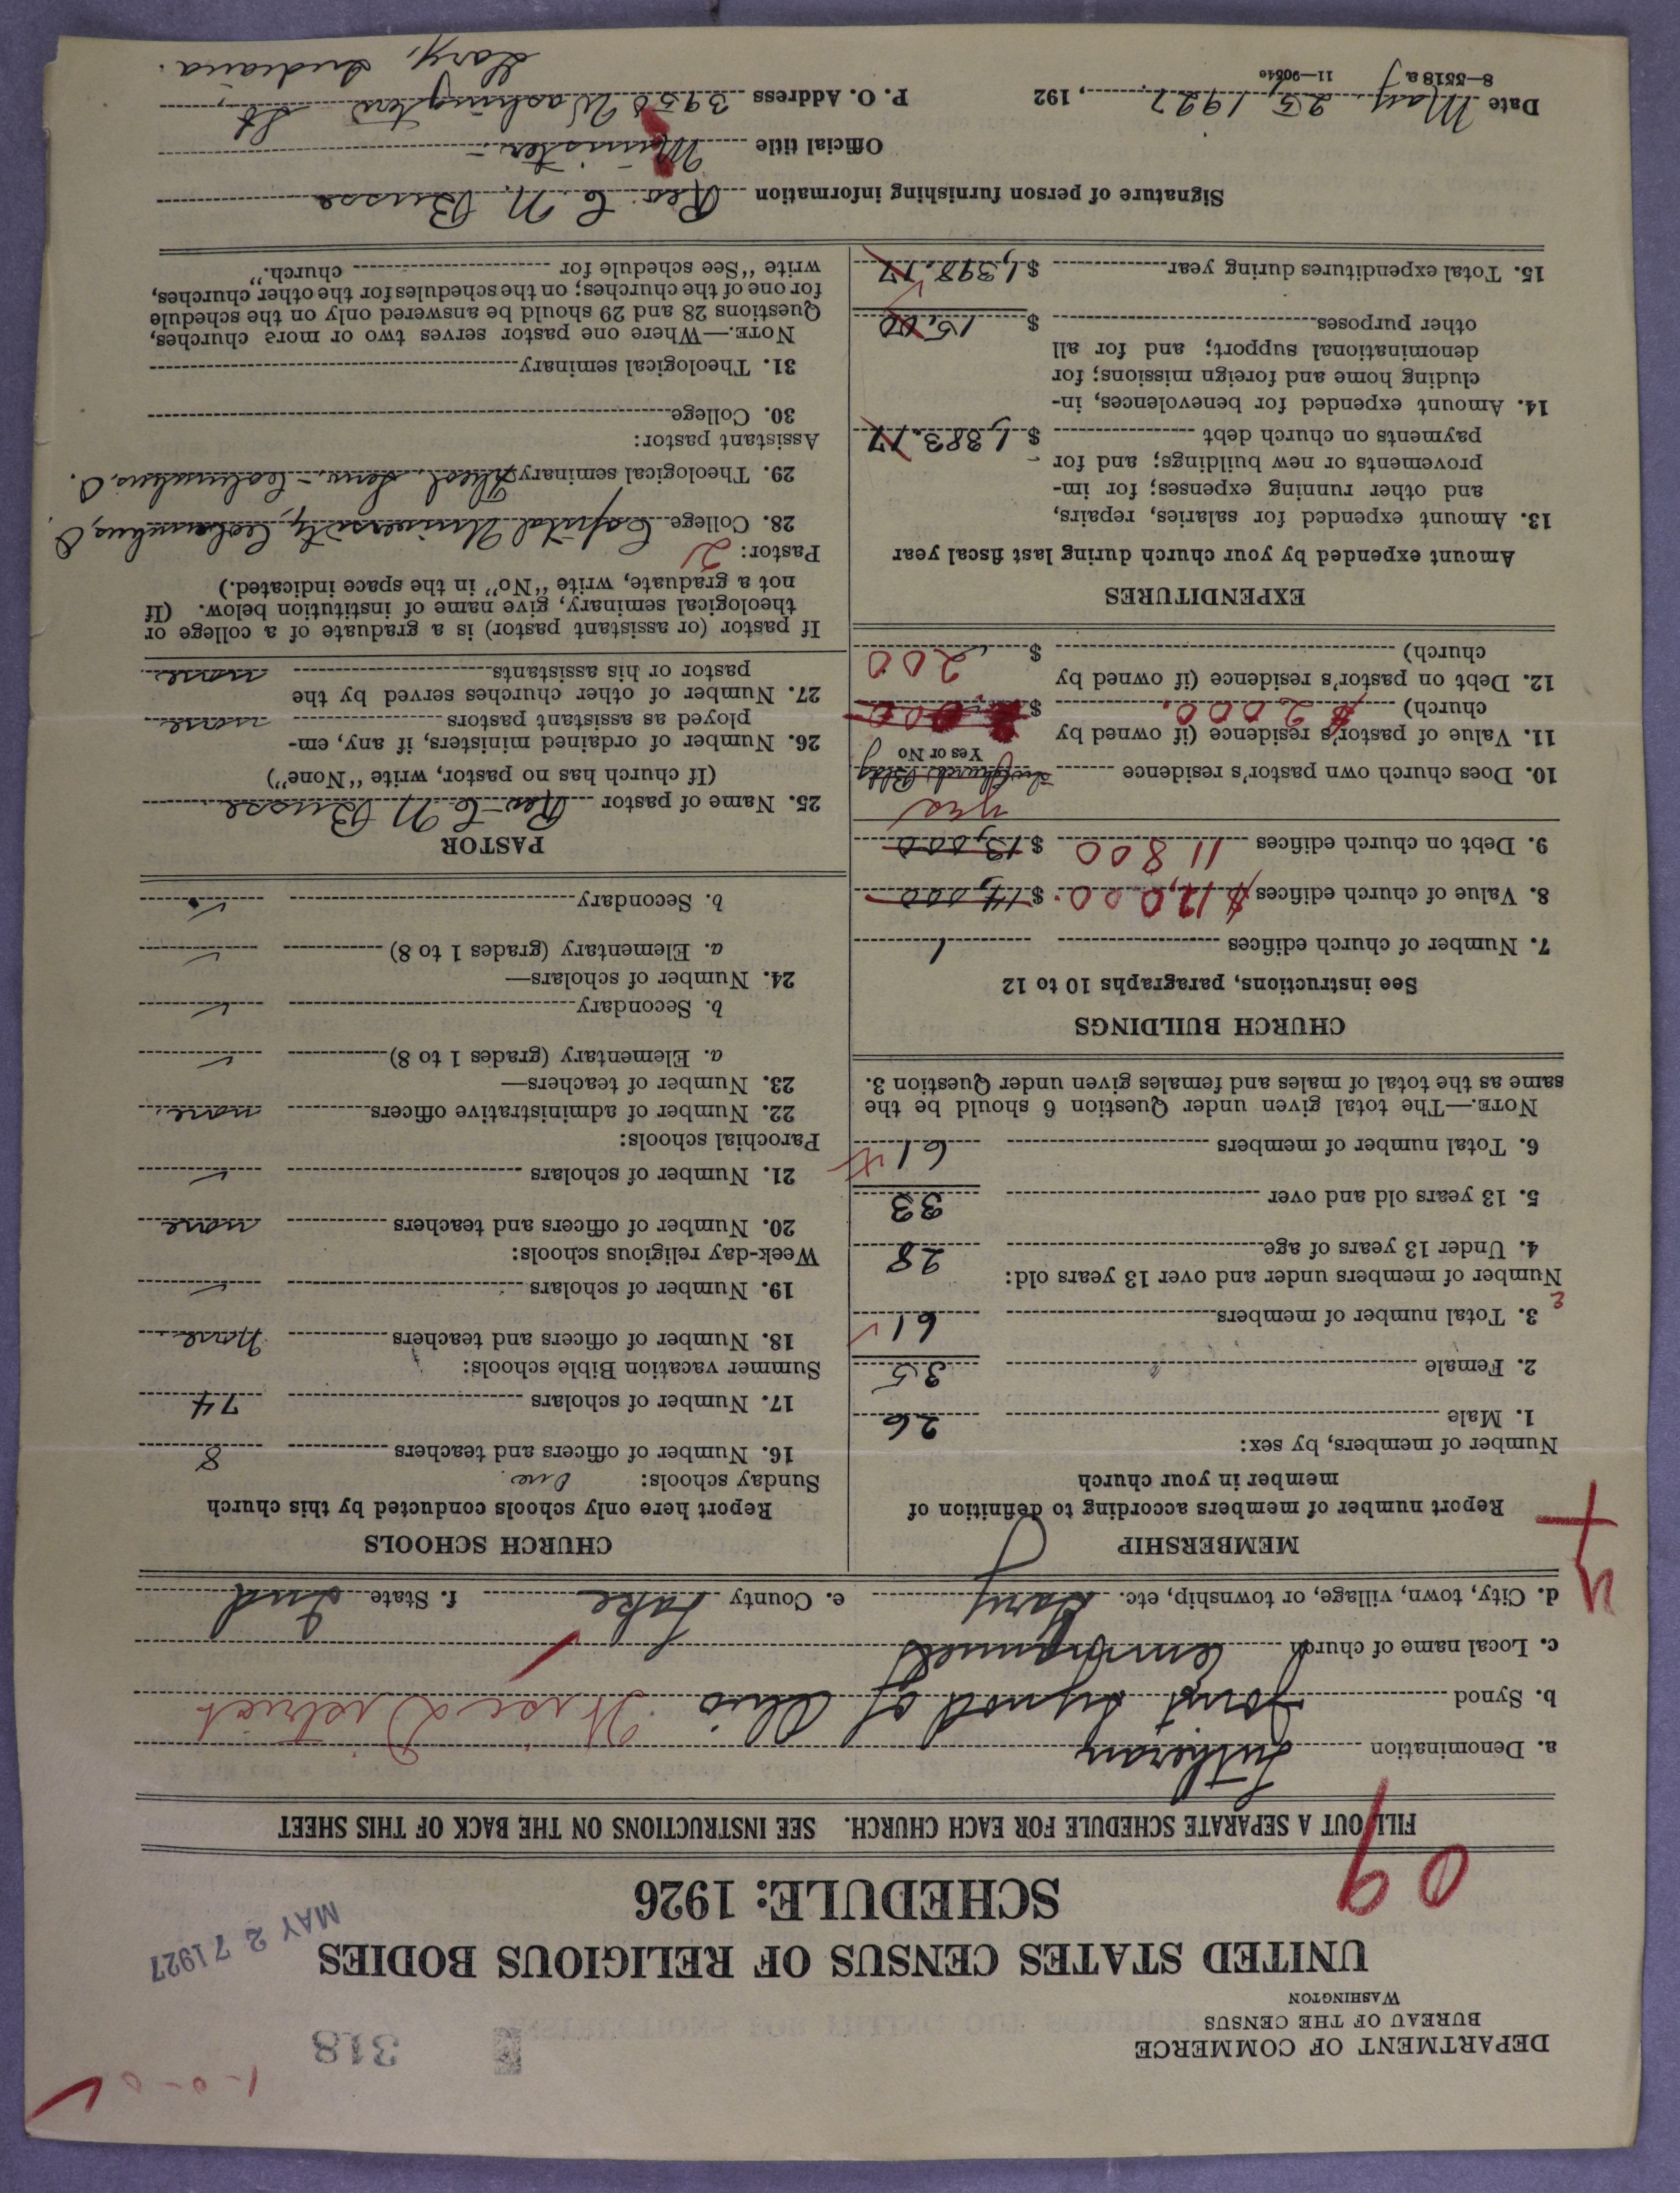 1-0-0
318
DEPARTMENT OF COMMERCE
BUREAU OF THE CENSUS
WASHINGTON
UNITED STATES CENSUS OF RELIGIOUS BODIES
MAY 27 1927
SCHEDULE: 1926
09
FILL OUT A SEPARATE SCHEDULE FOR EACH CHURCH. SEE INSTRUCTIONS ON THE BACK OF THIS SHEET
a. Denomination Lutheran
b. Synod Joint Synod of Ohio District
c. Local name of church
d. City, town, village, or township, etc. Gary e. County Lake f. State Ind
MEMBERSHIP
Report number of members according to definition of
member in your church
Number of members, by sex:
1. Male 26
2. Female 35
3. Total number of members 61
Number of members under and over 13 years old:
4. Under 13 years of age 28
5. 13 years old and over 33
6. Total number of members 61
NOTE.—The total given under Question 6 should be the
same as the total of males and females given under Question 3.
CHURCH BUILDINGS
See instructions, paragraphs 10 to 12
7. Number of church edifices 1
8. Value of church edifices $12,000. $14,000
9. Debt on church edifices 11800 $13,000
yes
10. Does church own pastor's residence
Yes or No
11. Value of pastor's residence (if owned by
church) $2000. $
12. Debt on pastor's residence (if owned by
church) $ 200
EXPENDITURES
Amount expended by your church during last fiscal year
13. Amount expended for salaries, repairs,
and other running expenses; for im-
provements or new buildings; and for
payments on church debt $1,383.17
14. Amount expended for benevolences, in-
cluding home and foreign missions; for
denominational support; and for all
other purposes $ 15.00
15. Total expenditures during year $1,398.17
CHURCH SCHOOLS
Report here only schools conducted by this church
Sunday schools: One
16. Number of officers and teachers 8
17. Number of scholars 74
Summer vacation Bible schools:
18. Number of officers and teachers None
19. Number of scholars
Week-day religious schools:
20. Number of officers and teachers none
21. Number of scholars
Parochial schools:
22. Number of administrative officers none
23. Number of teachers—
a. Elementary (grades 1 to 8)
b. Secondary
24. Number of scholars—
a. Elementary (grades 1 to 8)
b. Secondary
PASTOR
25. Name of pastor Rev. C N Busse
(If church has no pastor, write "None")
26. Number of ordained ministers, if any, em-
ployed as assistant pastors none
27. Number of other churches served by the
pastor or his assistants none
If pastor (or assistant pastor) is a graduate of a college or
theological seminary, give name of institution below. (If
not a graduate, write "No" in the space indicated.)
Pastor: 2
28. College Capital University, Columbus, O.
29. Theological seminary Theol. Sem. - Columbus, O.
Assistant pastor:
30. College
31. Theological seminary
NOTE.—Where one pastor serves two or more churches,
Questions 28 and 29 should be answered only on the schedule
for one of the churches; on the schedules for the other churches,
write "See schedule for church."
Signature of person furnishing information Rev. C N. Busse
Official title Minister.
Date May 25, 1927., 192 P. O. Address 3950 Washington St.,
8—5518 a 11—9054e Gary, Indiana.